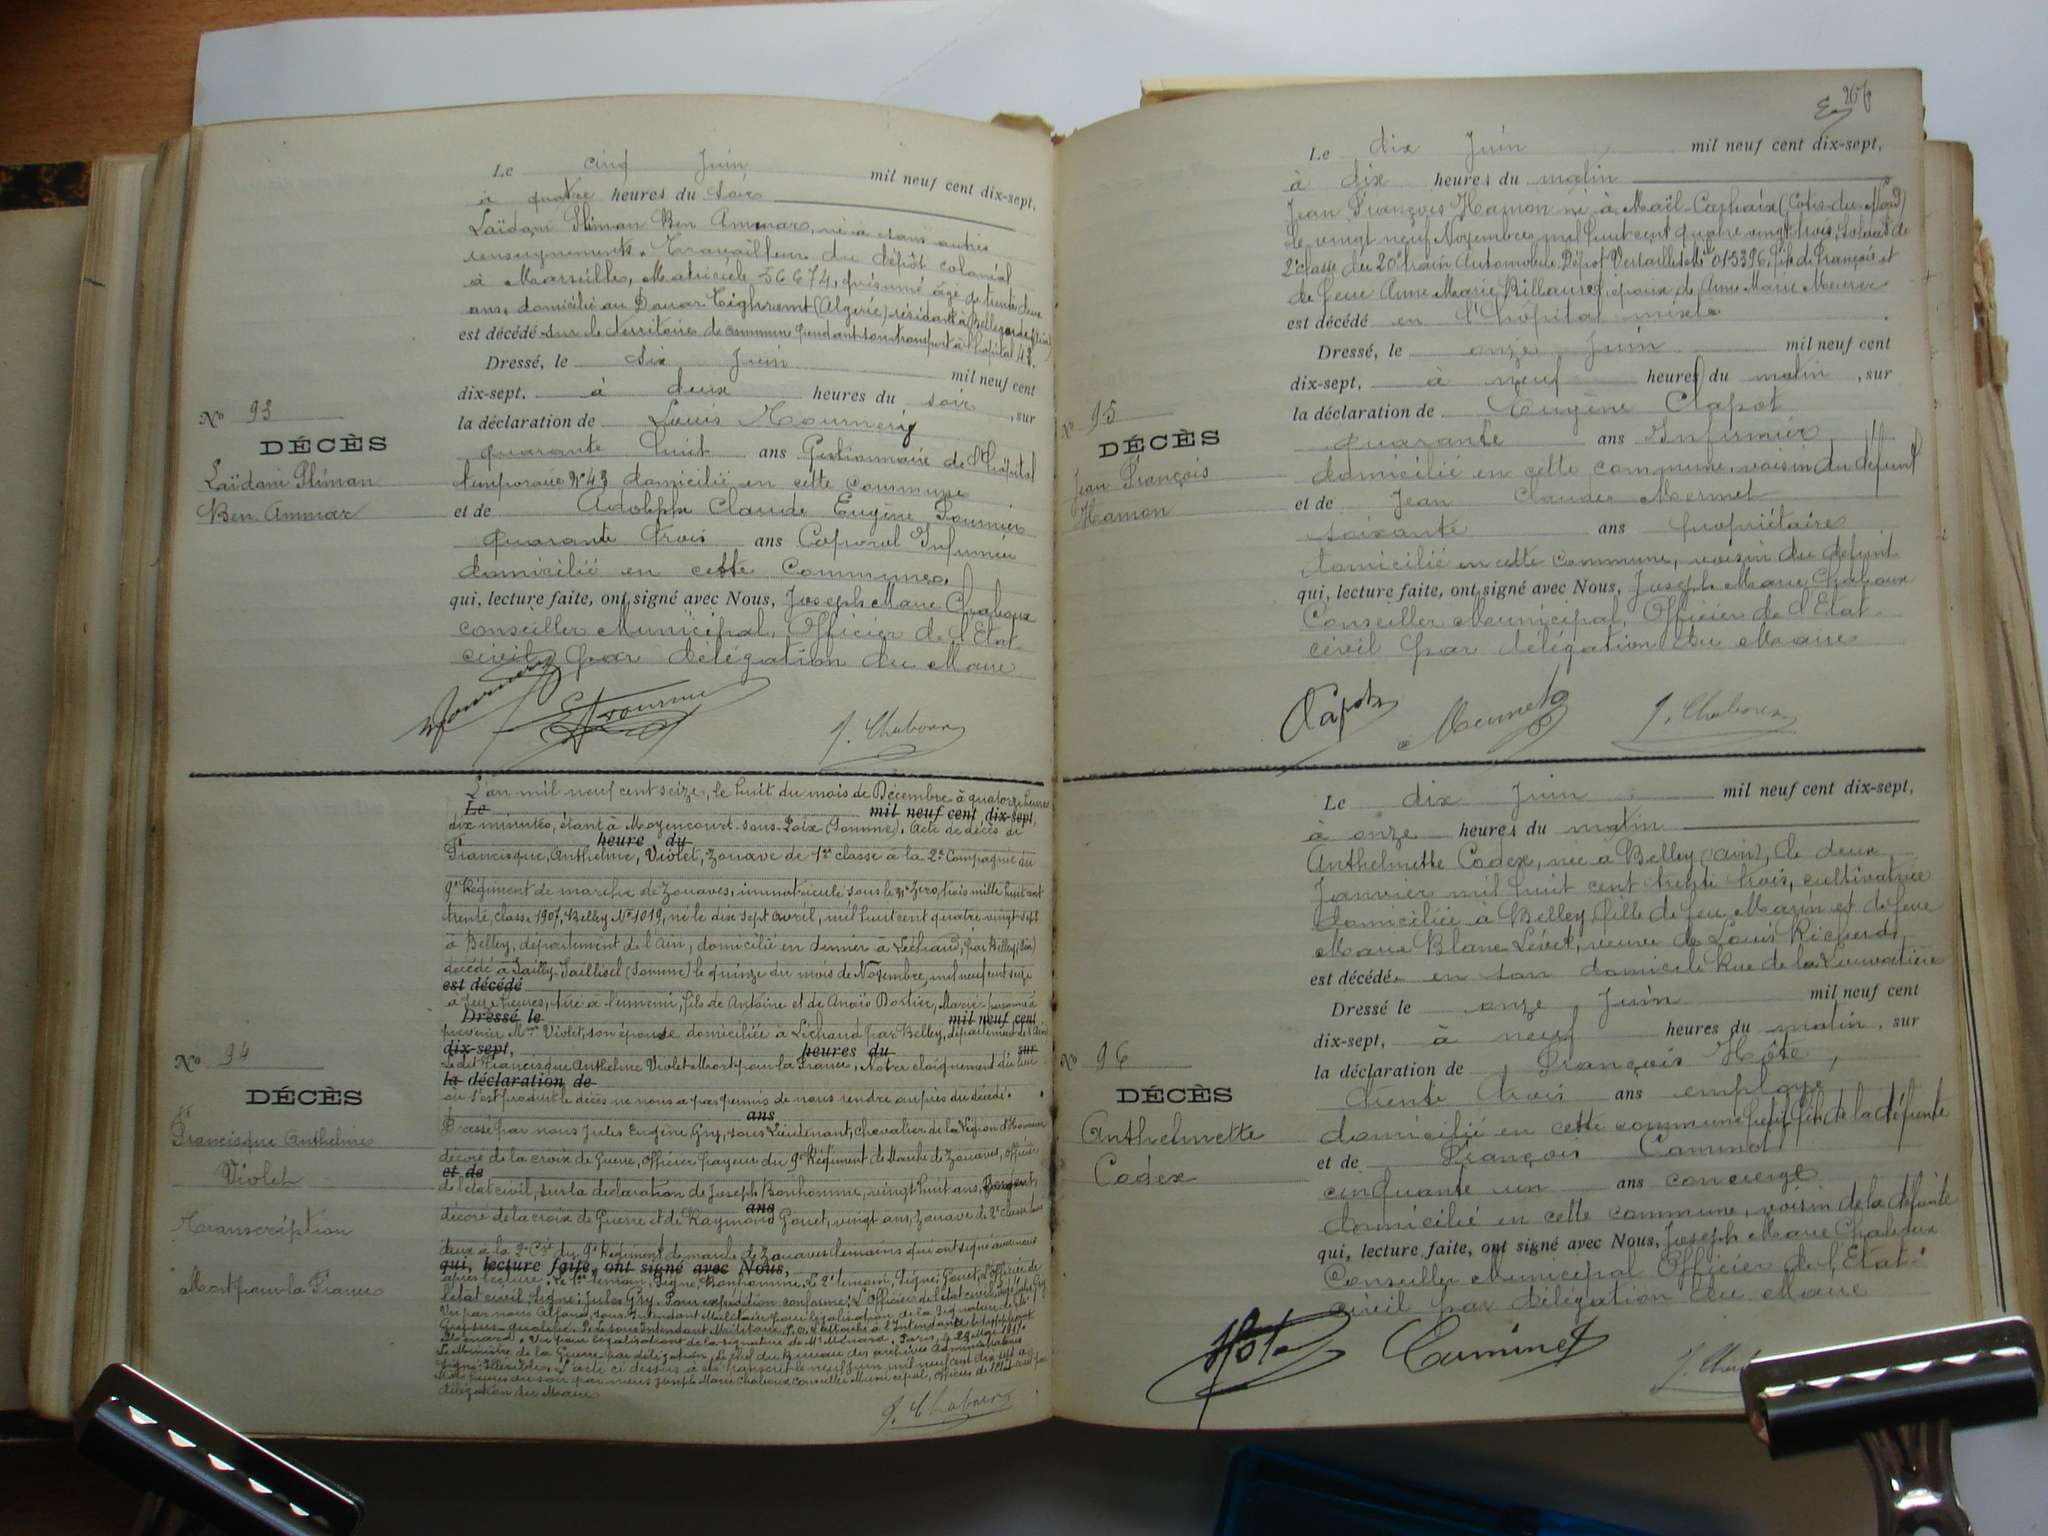 Le cinq Juin mil neuf cent dix-sept,
à quatre heures du soir
Laïdani Sliman Ben Ammar, né à sans autres
renseignements. Travailleur du dépôt colonial
à Marseille, Matricule 56674, présumé âgé de trente deux
ans, domicilié au Douar Tighremt (Algérie) résidant à Bellegarde (Ain)
est décédé sur le territoire de commune pendant son transport à l'hôpital 43.
Dressé, le six Juin mil neuf cent
dix-sept. à deux heures du soir, sur
la déclaration de Louis
quarante huit ans Gestionnaire de l'hôpital
temporaire N° 43 domicilié en cette commune
et de Adolphe Claude Eugène Fournier
quarante trois ans Caporal Infirmier
domicilié en cette Commune.
qui, lecture faite, ont signé avec Nous, Joseph Marie Chaboux
conseiller Municipal, Officier de l'Etat
civil par délégation du Maire
J. Chaboux
N° 93
DÉCÈS
Laïdani Sliman
Ben Ammar
L'an mil neuf cent seize, le huit du mois de Décembre à quatorze heures
Le mil neuf cent dix-sept,
dix minutes, étant à Moyencourt-sous-Poix (Somme). Acte de décès de
heure du
Francisque, Anthelme, Violet, Zouave de 1ère classe à la 2e Compagnie du
9e Régiment de marche de Zouaves, immatriculé sous le N° zéro, trois mille huit cent
trente, classe 1907, Belley N° 1019, né le dix sept avril, mil huit cent quatre vingt sept
à Belley, département de l'Ain, domicilié en dernier à Léchaud, par Belley, (Ain)
décédé à Sailly-Saillisel (Somme) le quinze du mois de Novembre, mil neuf cent seize
est décédé
à seize heures, tué à l'ennemi, fils de Antoine et de Anaïs Bortier, Marié - personne à
Dressé le mil neuf cent
prévenir Mme Violet, son épouse domiciliée à Léchaud par Belley, département de l'Ain
dix-sept, heures du sur
Le dit Francisque Anthelme Violet Mort pour la France, Notre éloignement du lieu
la déclaration de
où s'est produit le décès ne nous a pas permis de nous rendre auprès du décédé.
ans
Dressé par nous Jules Eugène Gry, sous Lieutenant, chevalier de la Légion d'honneur
décoré de la croix de Guerre, Officier payeur du 9e Régiment de Marche de Zouaves, officier
et de
de l'état civil, sur la déclaration de Joseph Bonhomme, vingt huit ans, Sergent,
ans
décoré de la croix de Guerre et de Raymond Gouet, vingt ans, Zouave de 2e classe tous
deux à la 2e Cie du 9e Régiment de marche de Zouaves témoins qui ont signé avec nous
qui, lecture faite, ont signé avec Nous,
après lecture. Le 1er témoin, signé, Bonhomme. Le 2e témoin, signé, Gouet, l'Officier de
l'état civil, signé: Jules Gry. Pour expédition conforme: L'Officier de l'état civil, signé: Jules Gry
Vu par nous Alfand, sous Intendant Militaire pour légalisation de la signature de Mr
Gry sus-qualifié. Le sous Intendant Militaire P.O. l'attaché à l'Intendance
Ménard. Vu pour légalisation de la signature de Mr Ménard. Paris, le 23 Mai 1917.
Le Ministre de la Guerre par délégation, Le chef du Bureau des archives Administratives
signé: illisible. L'acte ci dessus a été transcrit le neuf Juin mil neuf cent dix sept à
trois heures du soir par nous Joseph Marie Chaboux Conseiller Municipal, Officier de l'Etat civil par
délégation du Maire
J. Chaboux
N° 94
DÉCÈS
Francisque Anthelme
Violet
Transcription
Mort pour la France
26
Le dix Juin mil neuf cent dix-sept,
à dix heures du matin
Jean François Hamon né à Maël-Carhaix (Côtes-du-Nord)
le vingt neuf Novembre mil huit cent quatre vingt trois, Soldat de
2e classe du 20e train Automobile Dépôt Versailles Mle 015396, fils de François et
de feue Anne Marie Billaurec, époux de Anne Marie Meurer
est décédé en l'hôpital mixte
Dressé, le onze Juin mil neuf cent
dix-sept. à neuf heures du matin, sur
la déclaration de Eugène Clapot
quarante ans Infirmier
domicilié en cette commune, voisin du défunt
et de Jean Claude Mermet
soixante ans propriétaire
domicilié en cette commune, voisin du défunt
qui, lecture faite, ont signé avec Nous, Joseph Marie Chaboux
Conseiller Municipal, Officier de l'Etat
civil par délégation du Maire
Clapot Mermet J. Chaboux
N° 95
DÉCÈS
Jean François
Hamon
Le dix Juin mil neuf cent dix-sept,
à onze heures du matin
Anthelmette Codex, née à Belley (Ain), le deux
Janvier mil huit cent trente trois, cultivatrice
domiciliée à Belley, fille de feu Marin et de feue
Marie Blanc Lévet, veuve de Louis Richerot
est décédée en son domicile Rue de la Louvatière
Dressé le onze Juin mil neuf cent
dix-sept, à neuf heures du matin, sur
la déclaration de François Hôte,
trente trois ans employé
domicilié en cette commune petit fils de la défunte
et de François Cuminet
cinquante un ans concierge
domicilié en cette commune, voisin de la défunte
qui, lecture faite, ont signé avec Nous, Joseph Marie Chaboux
Conseiller Municipal Officier de l'Etat
civil par délégation du Maire
Hôte Cuminet
N° 96
DÉCÈS
Anthelmette
Codex